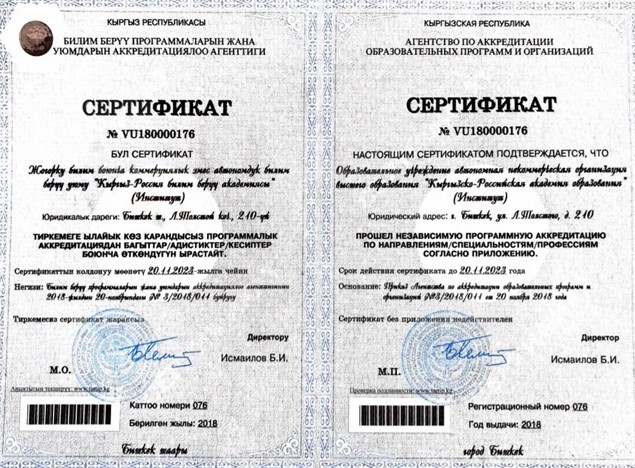 КЫРГЫЗ РЕСПУБЛИКАСЫ
БИЛИМ БЕРҮҮ ПРОГРАММАЛАРЫН ЖАНА
УЮМДАРЫН АККРЕДИТАЦИЯЛОО АГЕНТТИГИ
СЕРТИФИКАТ
№ VU180000176
БУЛ СЕРТИФИКАТ
Жогорку билим боюнча коммерциялык эмес автономдук билим
берүү уюму "Кыргыз-Россия билим берүү академиясы"
(Институт)
Юридикалык дареги: Бишкек ш., Л.Толстой көч., 210-үй
ТИРКЕМЕГЕ ЫЛАЙЫК КӨЗ КАРАНДЫСЫЗ ПРОГРАММАЛЫК
АККРЕДИТАЦИЯДАН БАГЫТТАР/АДИСТИКТЕР/КЕСИПТЕР
БОЮНЧА ӨТКӨНДҮГҮН ЫРАСТАЙТ.
Сертификаттын колдонуу мөөнөтү 20.11.2023-жылга чейин
Негизи: Билим берүү программаларын жана уюмдарын аккредитациялоо агенттигинин
2018-жылдын 20-ноябрындагы № 3/2018/011 буйругу
Тиркемесиз сертификат жараксыз
Директору
Исмаилов Б.И.
М.О.
www.aaop.kg
Каттоо номери 076
Берилген жылы: 2018
Бишкек шаары
КЫРГЫЗСКАЯ РЕСПУБЛИКА
АГЕНТСТВО ПО АККРЕДИТАЦИИ
ОБРАЗОВАТЕЛЬНЫХ ПРОГРАММ И ОРГАНИЗАЦИЙ
СЕРТИФИКАТ
№ VU180000176
НАСТОЯЩИМ СЕРТИФИКАТОМ ПОДТВЕРЖДАЕТСЯ, ЧТО
Образовательное учреждение автономная некоммерческая организация
высшего образования "Кыргызско-Российская академия образования"
(Институт)
Юридический адрес: г. Бишкек, ул. Л.Толстого, д. 210
ПРОШЕЛ НЕЗАВИСИМУЮ ПРОГРАММНУЮ АККРЕДИТАЦИЮ
ПО НАПРАВЛЕНИЯМ/СПЕЦИАЛЬНОСТЯМ/ПРОФЕССИЯМ
СОГЛАСНО ПРИЛОЖЕНИЮ.
Срок действия сертификата до 20.11.2023 года
Основание: Приказ Агентства по аккредитации образовательных программ и
организаций №3/2018/011 от 20 ноября 2018 года
Сертификат без приложения недействителен
Директор
Исмаилов Б.И.
М.П.
Проверка подлинности:
Регистрационный номер 076
Год выдачи: 2018
город Бишкек